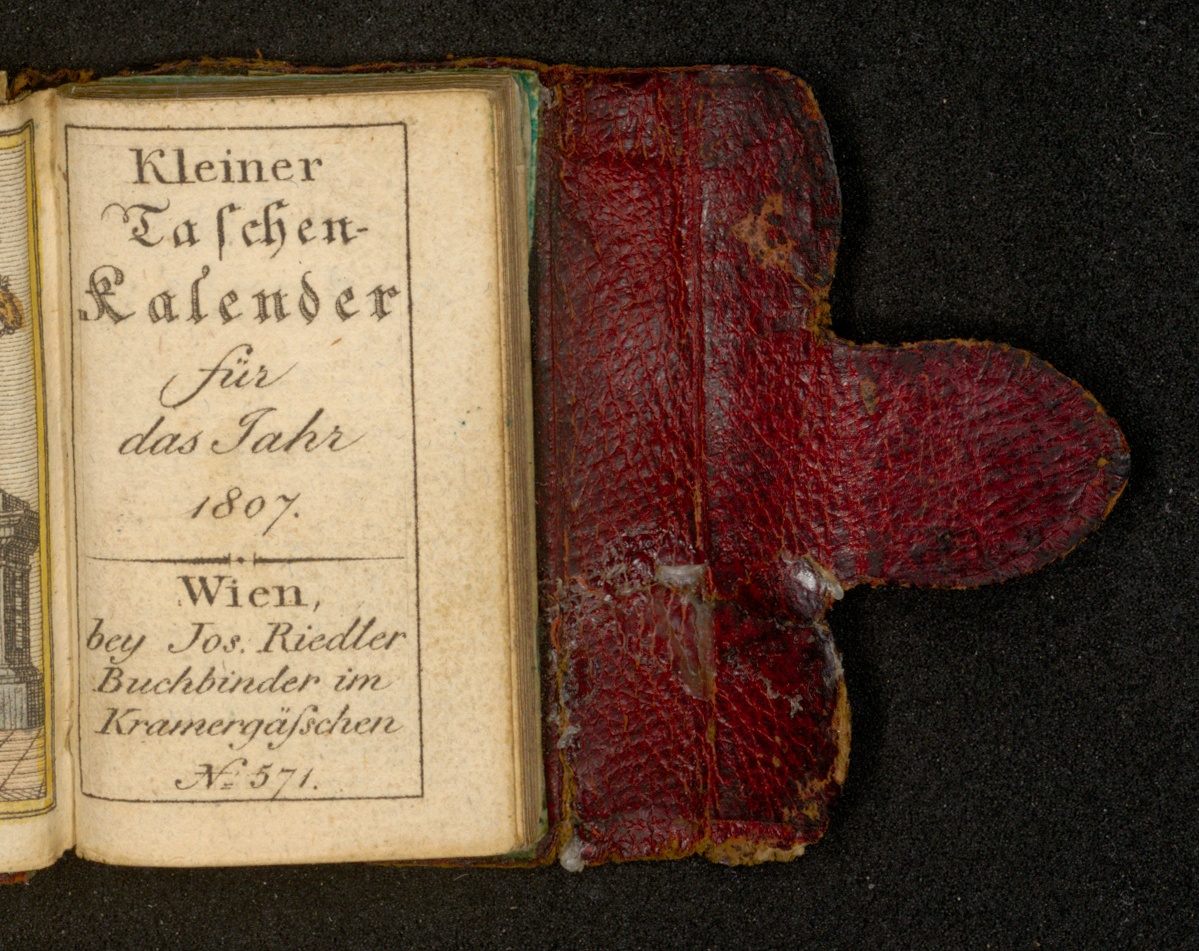 Kleiner
Taſchen-
Kalender
für
das Jahr
1807.
Wien,
bey Jos. Riedler
Buchbinder im
Kramergäſschen
No. 571.